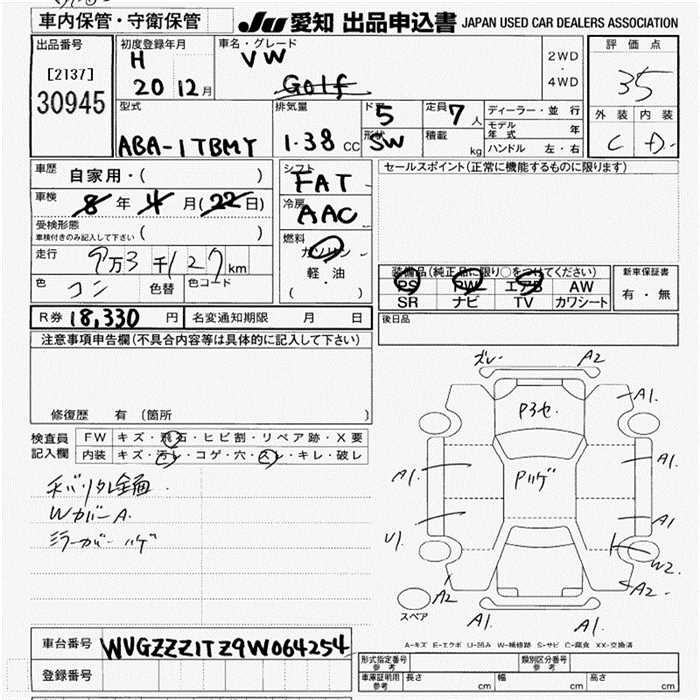 車内保管・守衛保管
JU 愛知 出品申込書 JAPAN USED CAR DEALERS ASSOCIATION
出品番号
[2137]
30945
初度登録年月
H
20 12 月
車名・グレード
VW
Golf
2WD
・
4WD
評価点
35
外装 内装
C D
型式
ABA-1TBMY
排気量
1.38 cc
ドア 5
形状 SW
定員 7 人
積載 kg
ディーラー・並行
モデル年式 年
ハンドル 左・右
車歴 自家用・( )
車検 8 年 4 月(22日)
受検形態
車検付きのみ記入して下さい ( )
走行 9万3千127km
色 コン 色替 色コード
シフト
FAT
冷房
AAC
燃料
ガソリン
軽・油
( )
セールスポイント(正常に機能するものに限ります)
装備品(純正品に限り○をつけてください)
PS PW エアB AW
SR ナビ TV カワシート
新車保証書
有・無
R券 18,330 円 名変通知期限 月 日
後日品
注意事項申告欄(不具合内容等は具体的に記入して下さい)
修復歴 有(箇所 )
検査員
記入欄
FW キズ・飛石・ヒビ割・リペア跡・X要
内装 キズ・汚レ・コゲ・穴・スレ・キレ・破レ
Wカバー A.
ミラーカバー ハゲ
ズレ A2
A1.
P3セ
A1. Pハゲ A1.
U1. A1
W2.
A2 A2
A1. A1.
スペア
A-キズ E-エクボ U-凹み W-補修跡 S-サビ C-腐食 XX-交換済
車台番号 WVGZZZ1TZ9W064254
登録番号
形式指定番号
参考
類別区分番号
参考
車庫証明用
参考
長さ cm 幅 cm 高さ cm